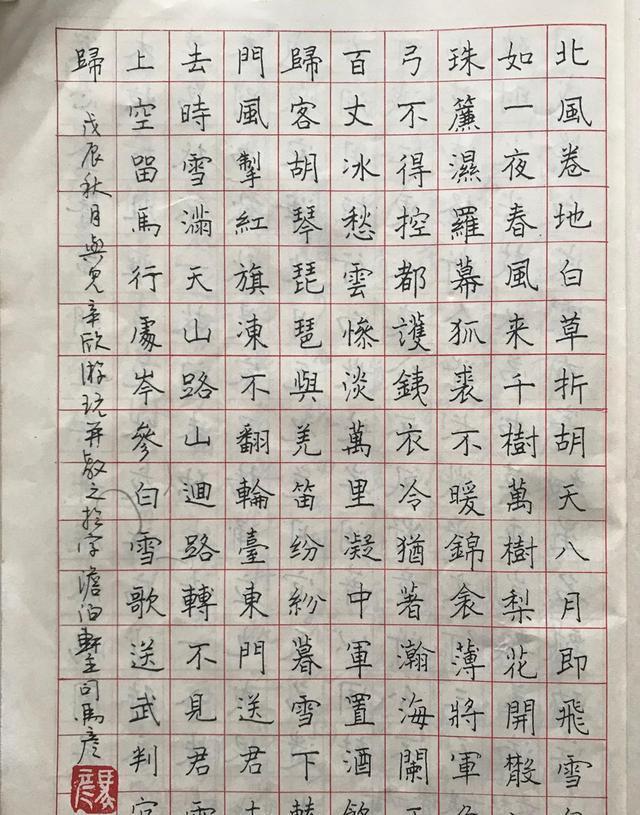 北風卷地白草折胡天八月即飛雪
如一夜春風来千樹萬樹梨花開散
珠簾濕羅幕狐裘不暖錦衾薄將軍
弓不得控都護銕衣冷猶著瀚海闌
百丈冰愁雲慘淡萬里凝中軍置酒
歸客胡琴琵琶與羌笛纷紛暮雪下
門風掣紅旗凍不翻輪臺東門送君
去時雪滿天山路山迴路轉不見君
上空留馬行處岑參白雪歌送武判
歸
戊辰秋月與兒辛欣游玩并教之於字 澹泊軒主司馬彦